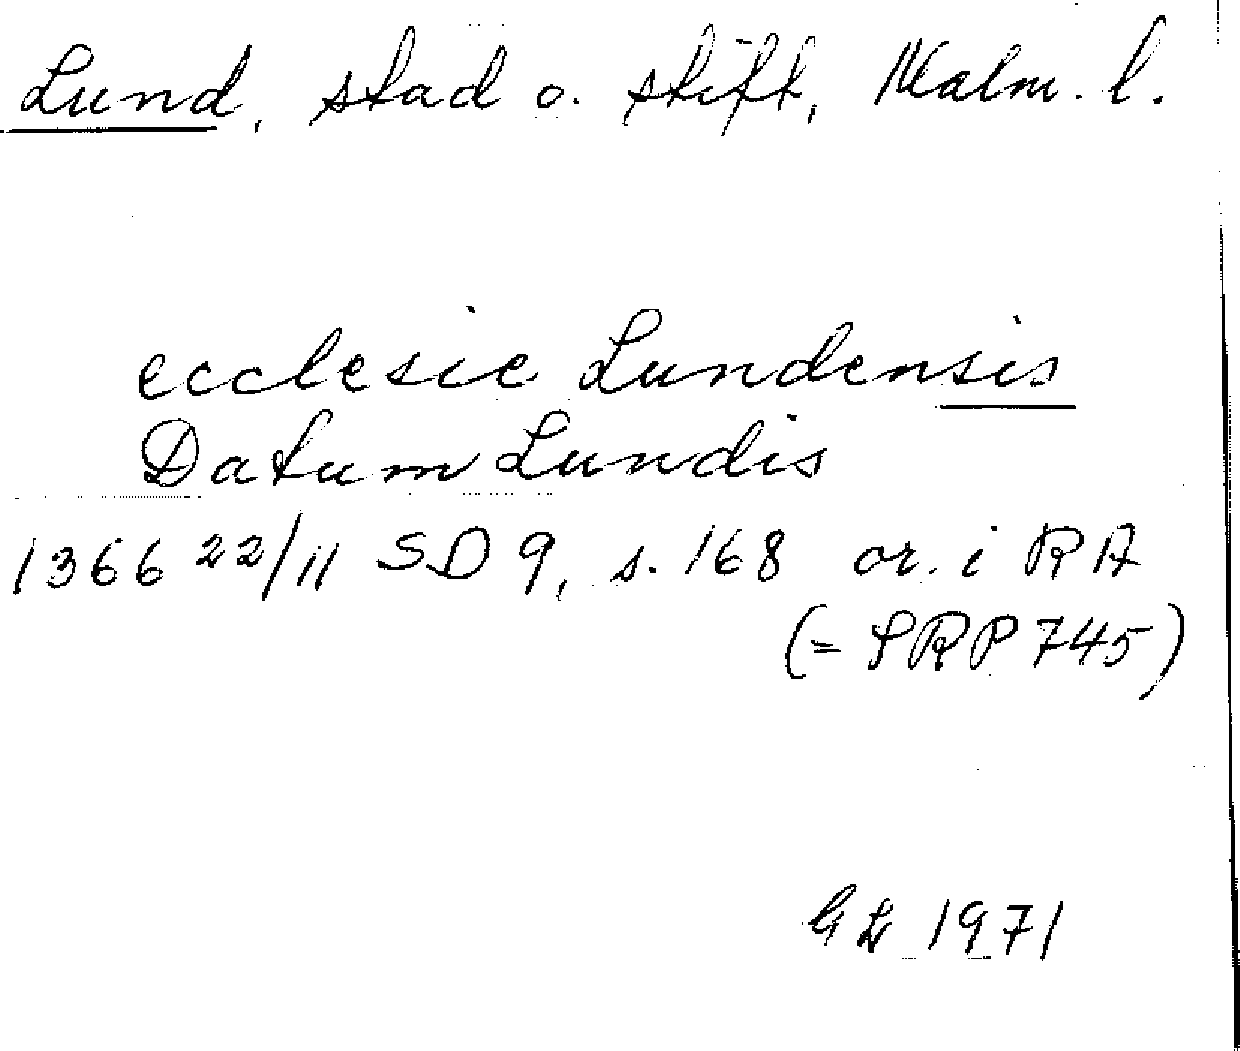 Lund, stad o. stift, Malm. l.
ecclesie Lundensis
Datum Lundis
1366 22/11 SD 9, s. 168 or. i RA
(= SRP 745)
1971